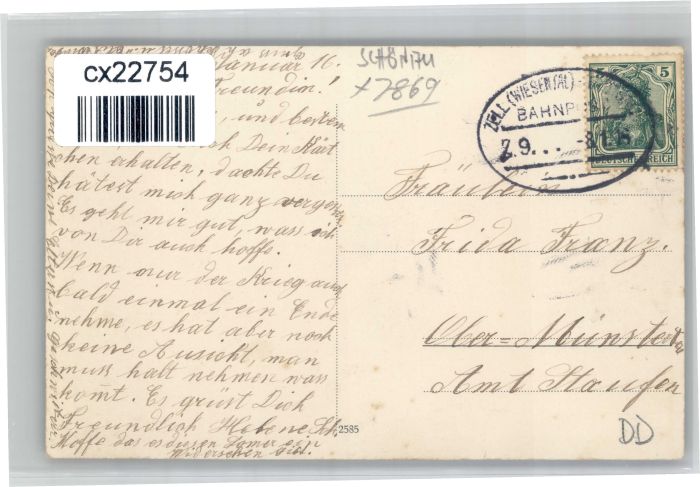 cx22754
SCHÖNAU
+7869
ZELL (WIESENTAL)
BAHNPOST
Z 9
5
DEUTSCHES REICH
Januar 16.
Freundin!
und bestem
Dein Kärt
chen erhalten, dachte Du
hätest mich ganz vergessen
Es geht mir gut, was ich
von Dir auch hoffe.
Wenn nur der Krieg auch
bald einmal ein Ende
nehme, es hat aber noch
keine Ausicht, man
muss halt nehmen was
komt. Es grüst Dich
Freundlich Helene Sch.
Hoffe das es diesen Somer ein
Widersehen gibt.
2585
Fräulein
Frida Franz.
Ober-Münstertal
Amt Staufen
DD